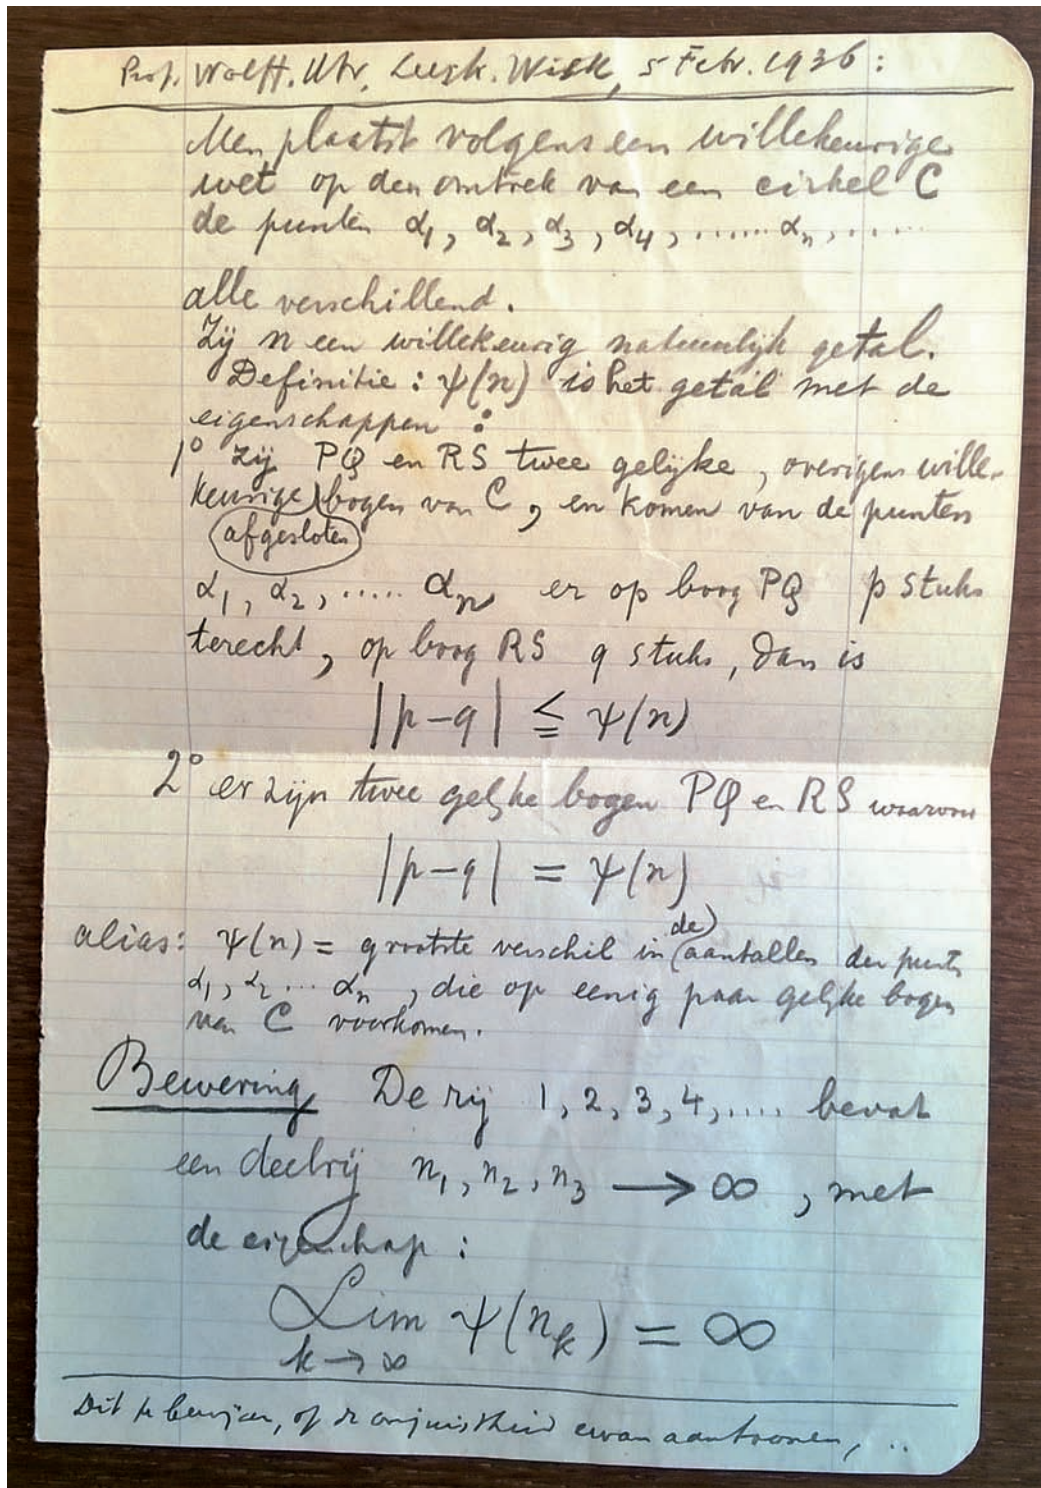 Prof. Wolff. Utr. Leesk. Wisk, 5 Febr. 1936:
Men plaatst volgens een willekeurige
wet op den omtrek van een cirkel C
de punten α₁, α₂, α₃, α₄, ...... αₙ, .....
alle verschillend.
Zij n een willekeurig natuurlijk getal.
Definitie: ψ(n) is het getal met de
eigenschappen:
1° Zij PQ en RS twee gelijke, overigens wille-
keurige bogen van C, en komen van de punten
afgesloten
α₁, α₂, ..... αₙ er op boog PQ p stuks
terecht, op boog RS q stuks, dan is
|p-q| ≦ ψ(n)
2° er zijn twee gelijke bogen PQ en RS waarvoor
|p-q| = ψ(n)
de
alias: ψ(n) = grootste verschil in aantallen der punten
α₁, α₂ ... αₙ, die op eenig paar gelijke bogen
van C voorkomen.
Bewering De rij 1, 2, 3, 4, .... bevat
een deelrij n₁, n₂, n₃ → ∞, met
de eigenschap:
Lim ψ(nₖ) = ∞
k → ∞
Dit te bewijzen, of de onjuistheid ervan aantoonen, ..